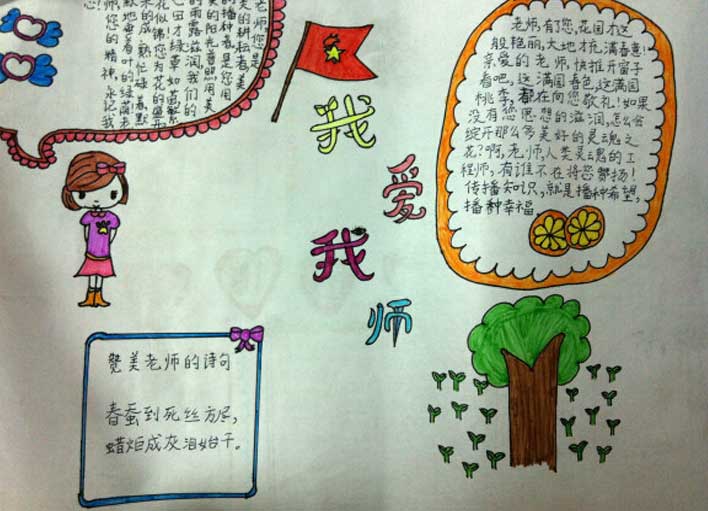 老师您是
美的耕耘者,美
的播种者。是您用
美的阳光普照用美
的雨露滋润,我们的
心田才绿草如茵繁
花似锦您为花的盛开
果的成熟忙碌着,默
默地垂着叶的绿荫!老
师,您的精神,永记我
心!
我
爱
我
师
老师,有了您,花园才这
般艳丽,大地才充满春意!
亲爱的老师,快推开窗子
看吧,这满园春色,这满园
桃李,都在向您敬礼!如果
没有您思想的滋润,怎么会
绽开那么多美好的灵魂之
花?啊,老师,人类灵魂的工
程师,有谁不在将您赞扬!
传播知识,就是播种希望,
播种幸福.
赞美老师的诗句
春蚕到死丝方尽,
蜡炬成灰泪始干。